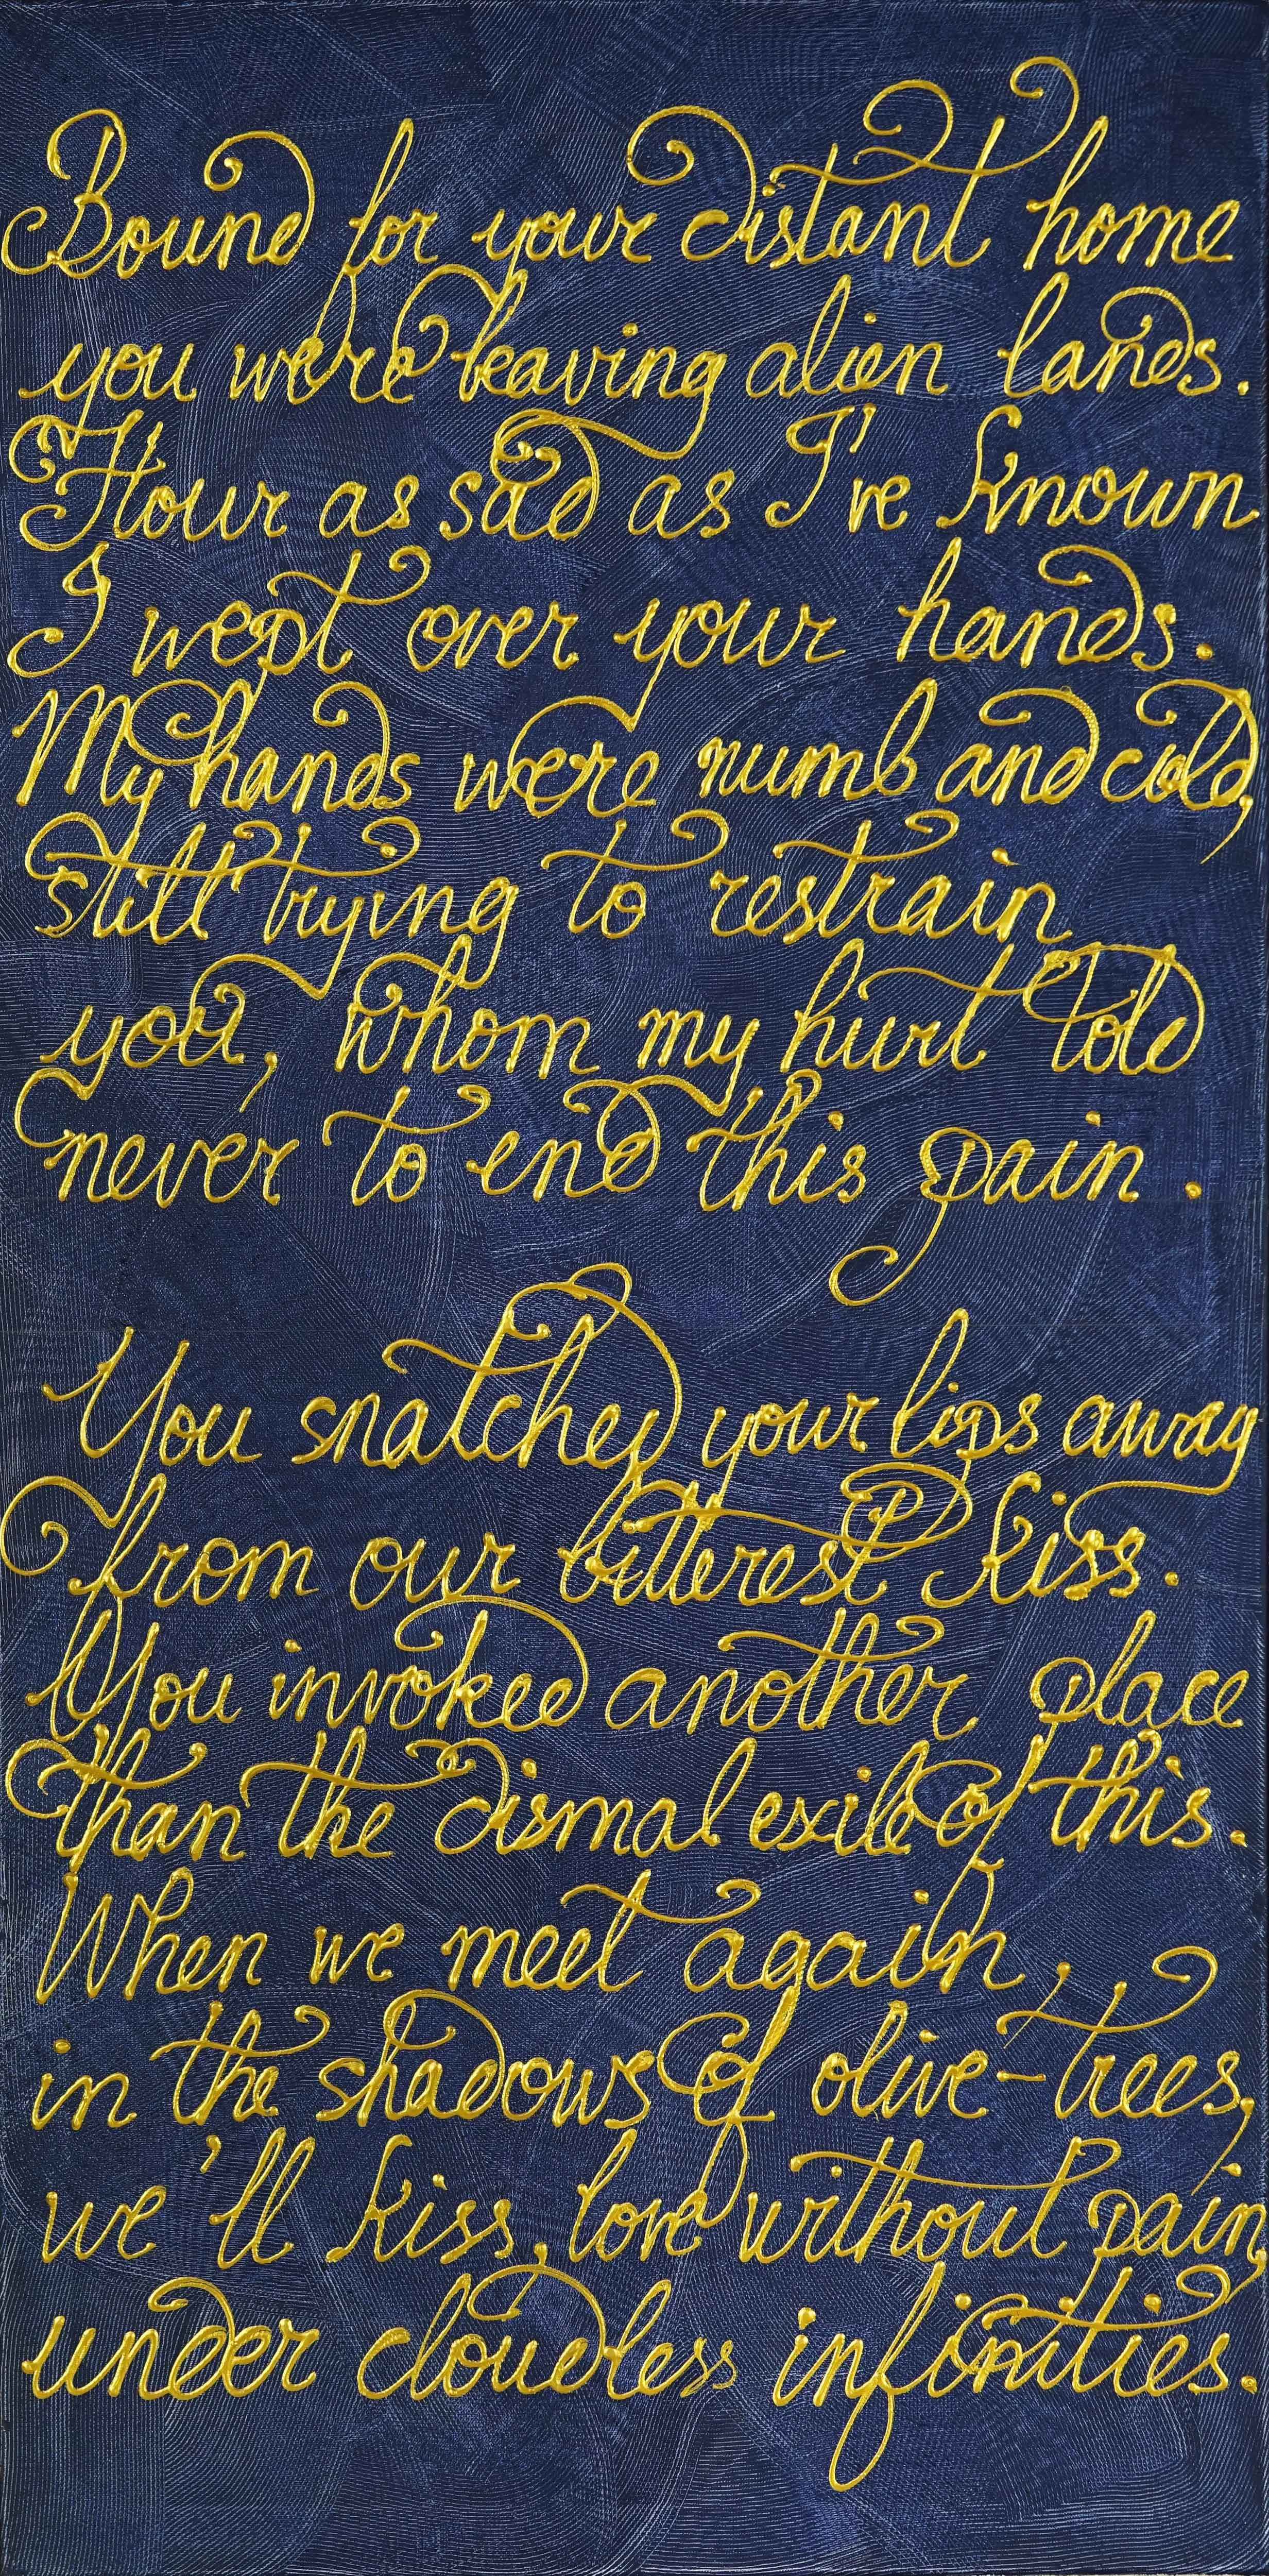 Bound for your distant home
you were leaving alien lands.
Hour as sad as I've known
I wept over your hands.
My hands were numb and cold,
still trying to restrain
you, whom my hurt told
never to end this pain.
You snatched your lips away
from our bitterest kiss.
You invoked another place
than the dismal exile of this.
When we meet again,
in the shadows of olive-trees,
we'll kiss, love without pain,
under cloudless infinities.